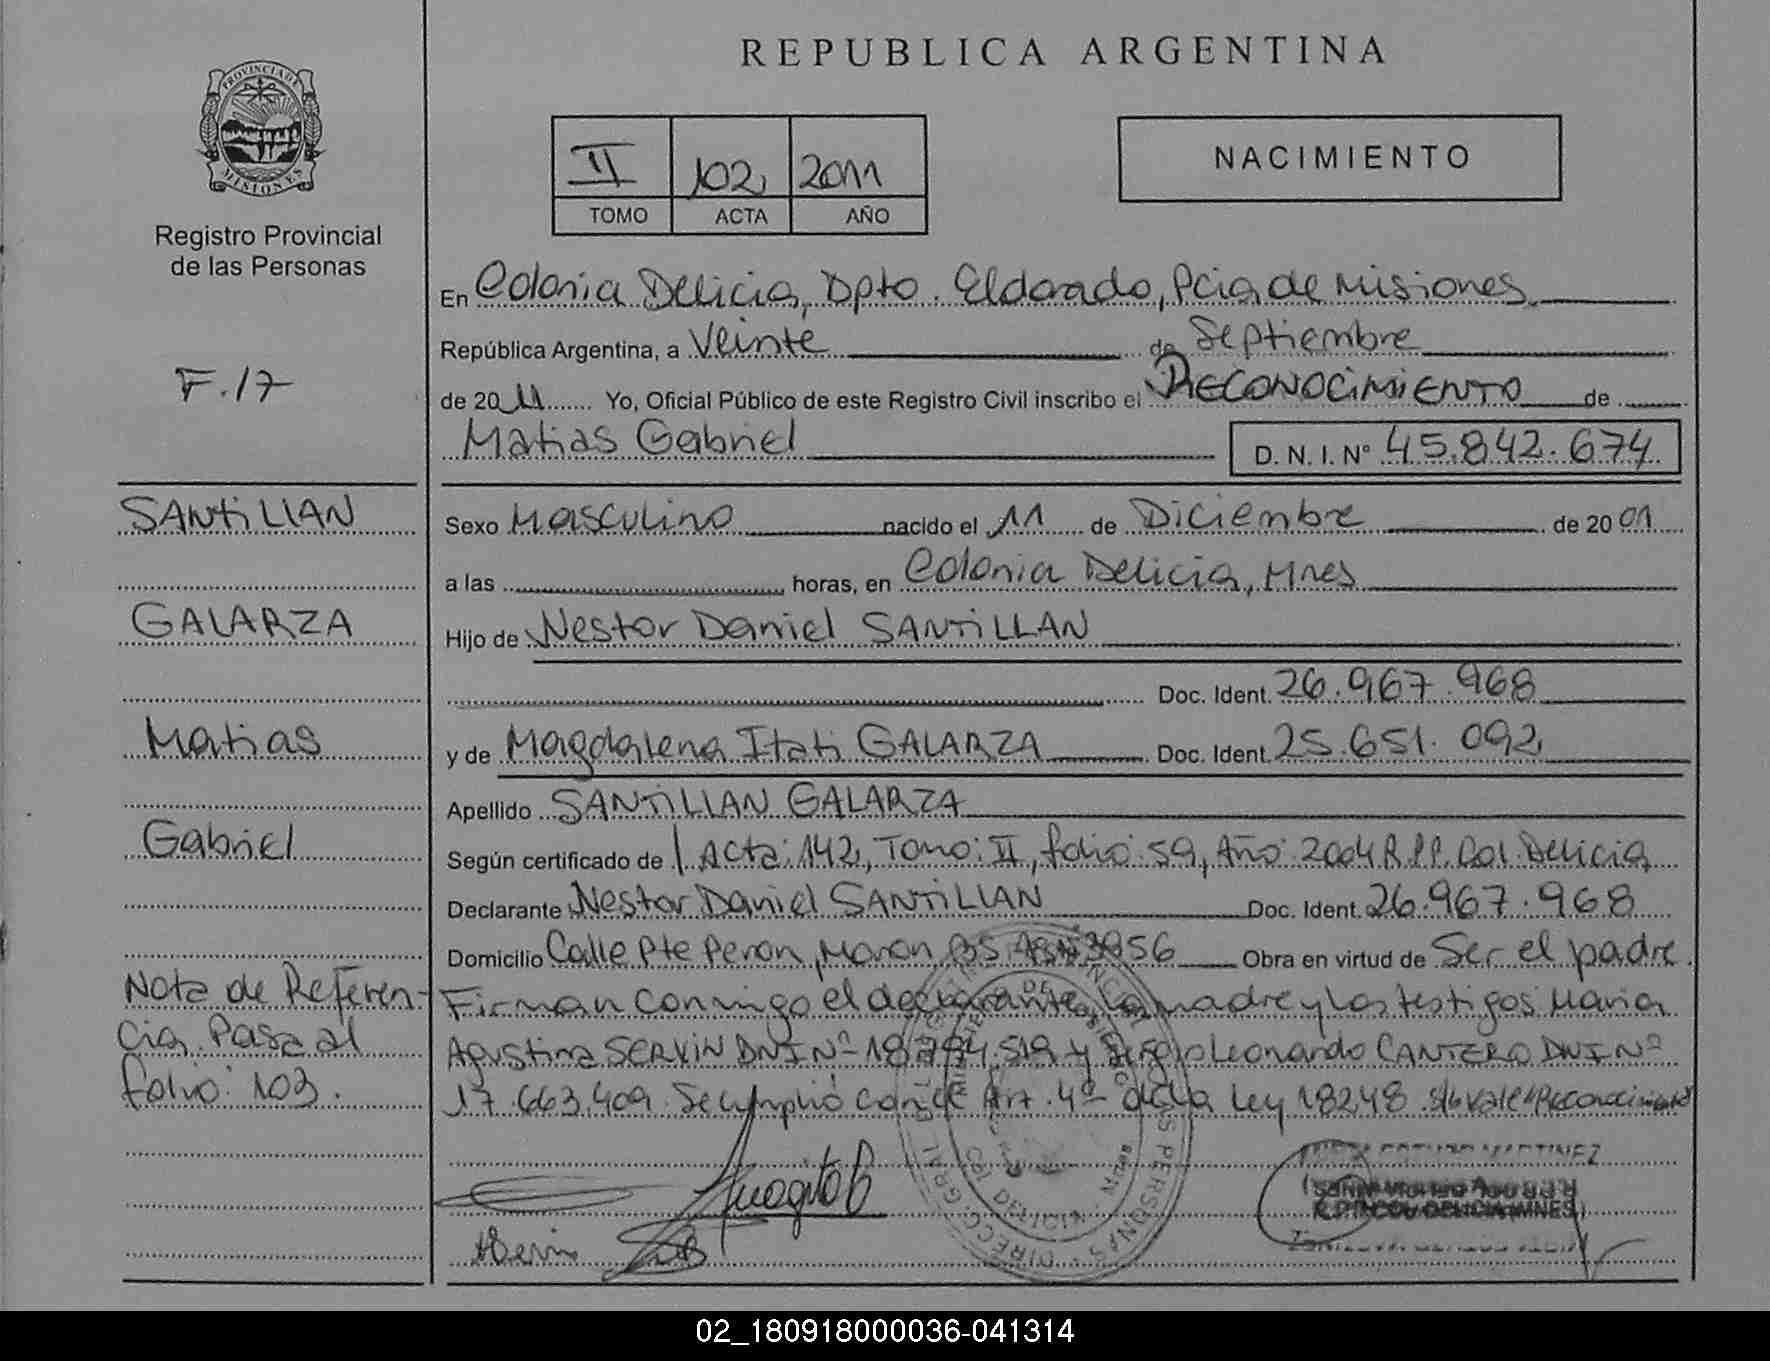 REPUBLICA ARGENTINA
PROVINCIA DE MISIONES
Registro Provincial
de las Personas
II 102 2011
TOMO ACTA AÑO
NACIMIENTO
F.17
SANTILLAN
GALARZA
Matias
Gabriel
Nota de Referen-
cia. Pasa al
folio: 103.
En Colonia Delicia, Dpto. Eldorado, Pcia de Misiones
República Argentina, a Veinte de Septiembre
de 2011 Yo, Oficial Público de este Registro Civil inscribo el RECONOCIMIENTO de
Matias Gabriel D. N. I. Nº 45.842.674
Sexo Masculino nacido el 11 de Diciembre de 2001
a las horas, en Colonia Delicia, Mnes
Hijo de Nestor Daniel SANTILLAN
Doc. Ident. 26.967.968
y de Magdalena Itati GALARZA Doc. Ident. 25.651.092
Apellido SANTILLAN GALARZA
Según certificado de Acta: 142, Tomo: II, folio: 59, Año: 2004 R.P.P. Col. Delicia
Declarante Nestor Daniel SANTILLAN Doc. Ident. 26.967.968
Domicilio Calle Pte Peron, Moron, BS AS Nº 3956 Obra en virtud de Ser el padre.
Firman conmigo el declarante, la madre y los testigos Maria
Agustina SERVIN DNI Nº 18.794.519 y Sergio Leonardo CANTERO DNI Nº
17.663.409. Se cumplió con el Art. 4º de la Ley 18248. S/b Vale "Reconocimiento"
MARTINEZ
COL. DELICIA MNES
02_180918000036-041314